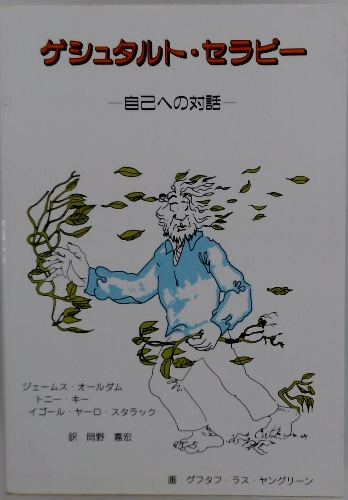 ゲシュタルト・セラピー
―自己への対話―
ジェームス・オールダム
トニー・キー
イゴール・ヤーロ・スタラック
訳 岡野 嘉宏
画 グフタフ・ラス・ヤングリーン